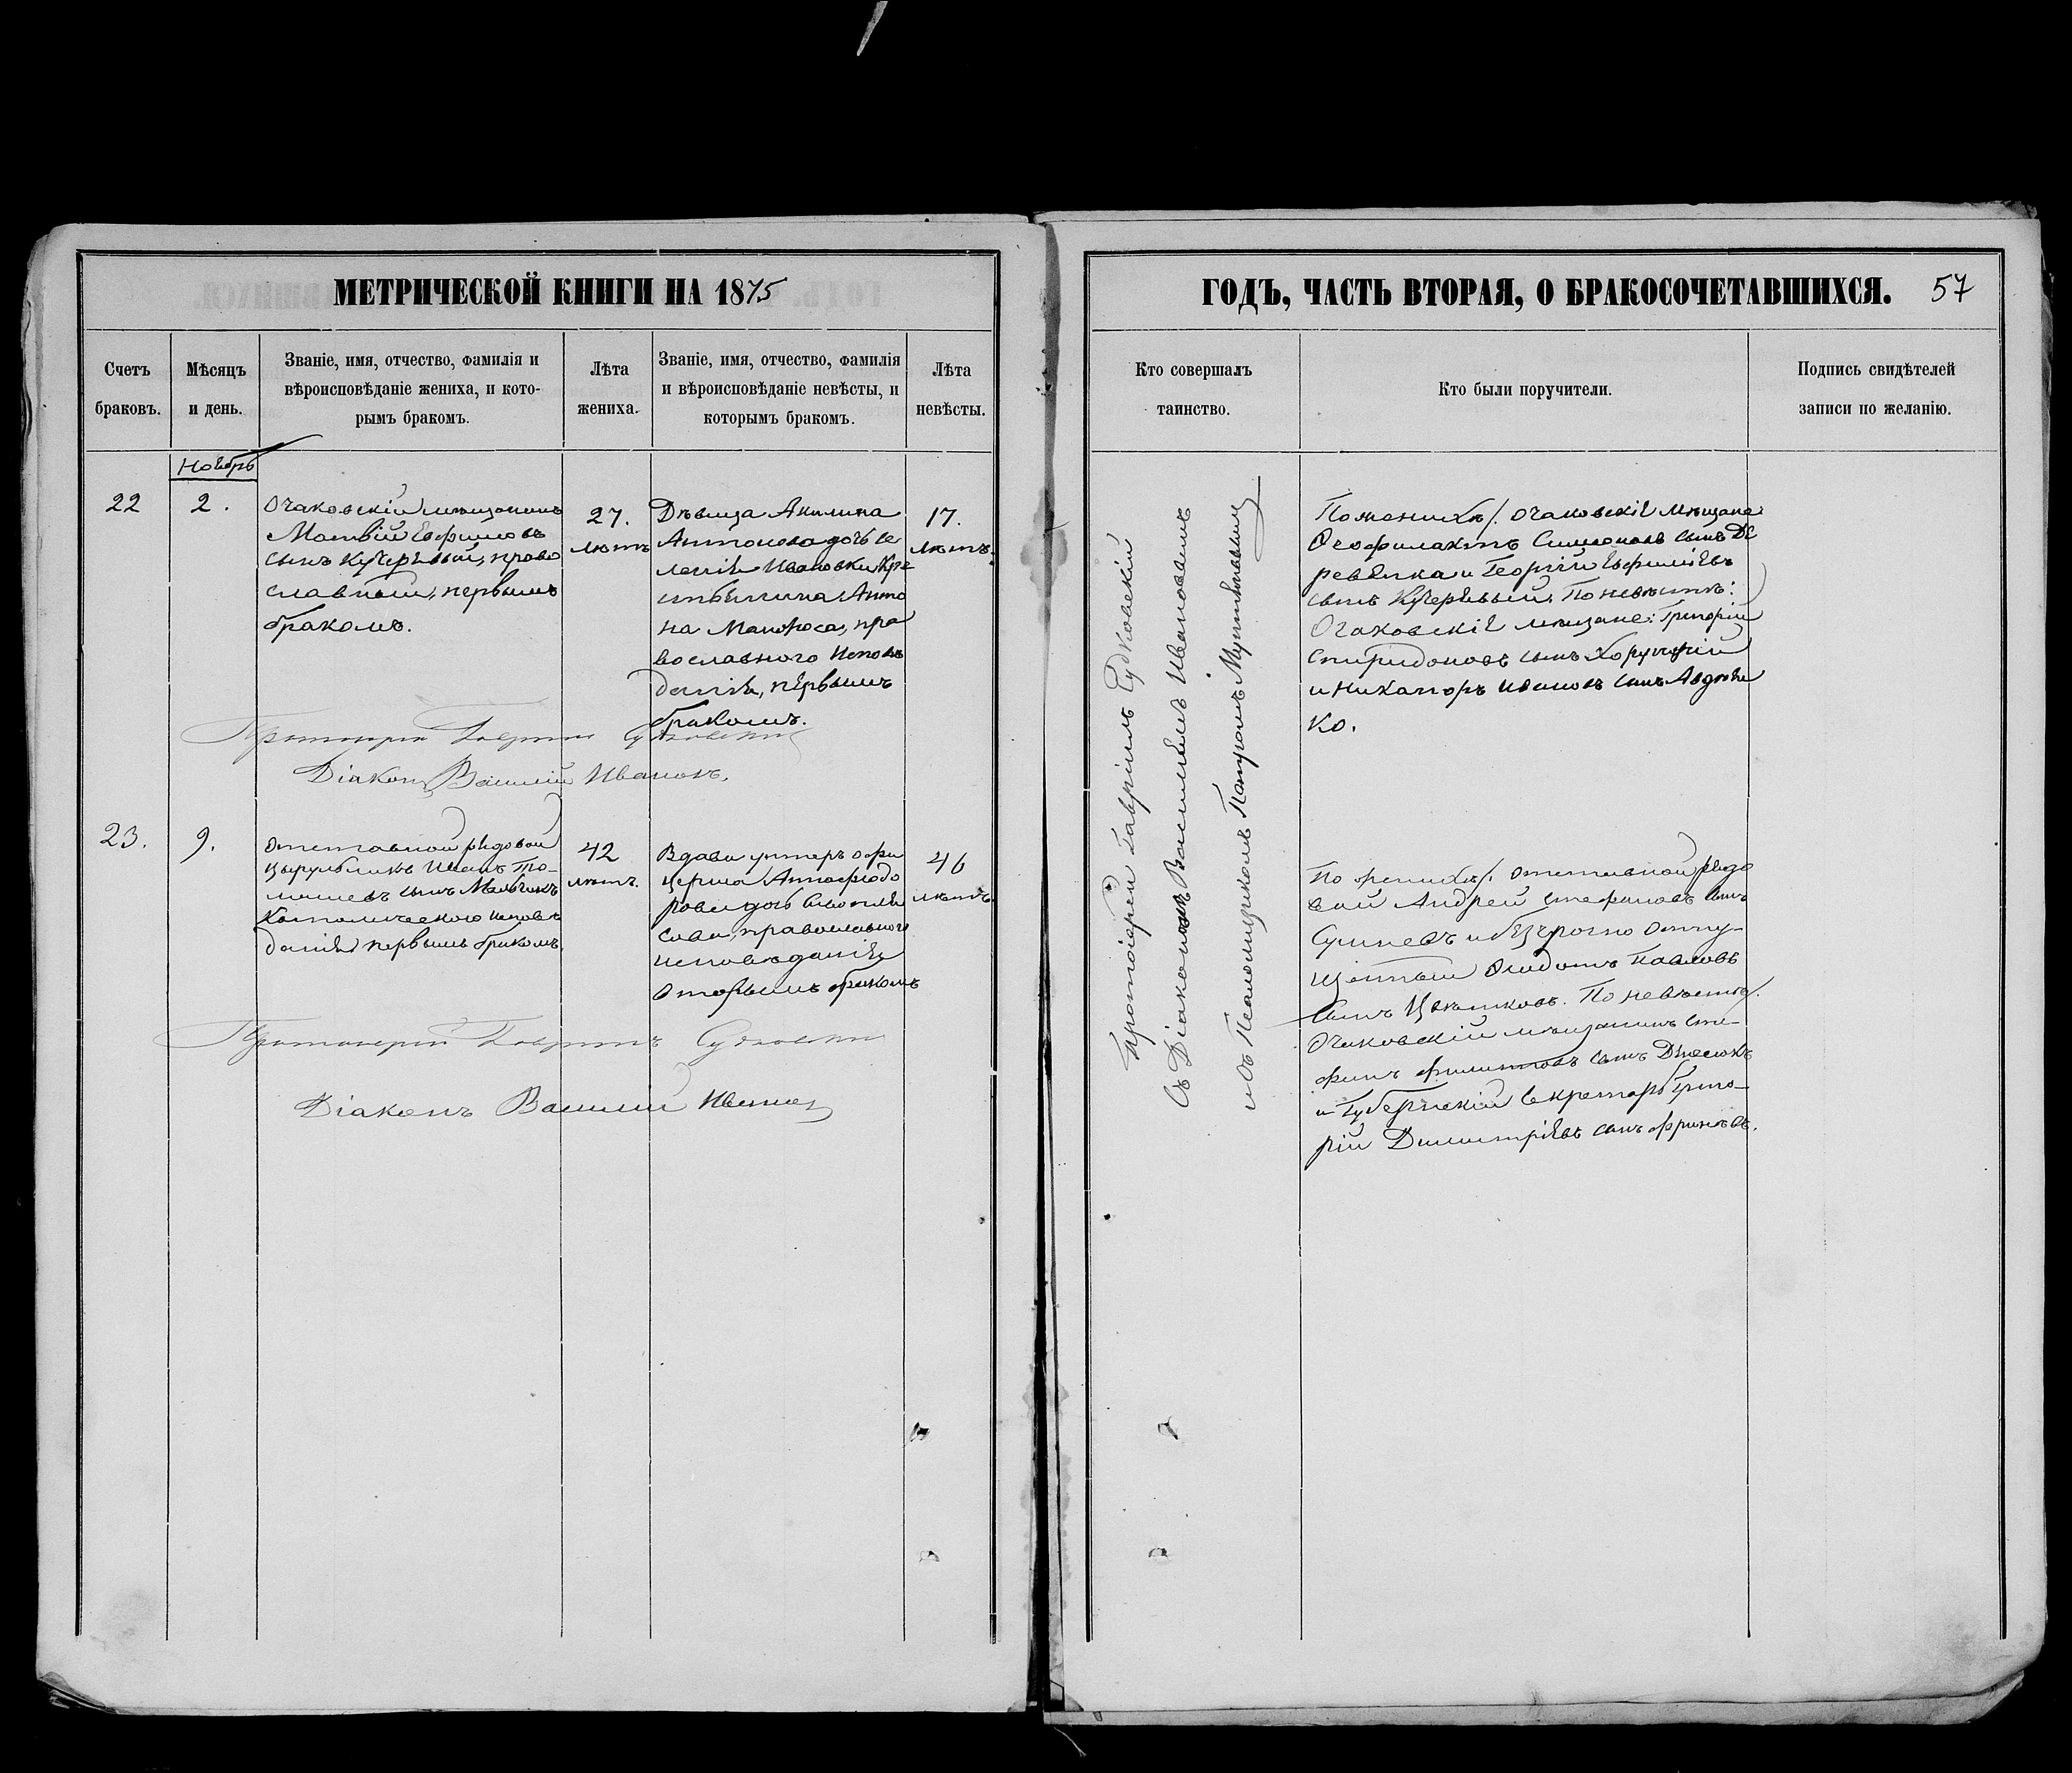 МЕТРИЧЕСКОЙ КНИГИ НА 1875
Счетъ
браковъ.
Мѣсяцъ
и день.
Званіе, имя, отчество, фамилія и
вѣроисповѣданіе жениха, и кото-
рымъ бракомъ.
Лѣта
жениха.
Званіе, имя, отчество, фамилія
и вѣроисповѣданіе невѣсты, и
которымъ бракомъ.
Лѣта
невѣсты.
Ноябрь
22
2.
Очаковскій мѣщанинъ
Матвій Ефимовъ
сынъ Кучерявый, право
славный, первымъ
бракомъ.
27.
лѣтъ
Дѣвица Акилина
Антонова дочь се
ленія Ивановки Кре
стьянина Анто
на Маноса, пра
вославнаго исповѣ
данія, первымъ
бракомъ.
17.
лѣтъ.
Протоіерей Гавріилъ Судковскій
Діаконъ Василій Ивановъ.
23.
9.
Отставной рядовой
Иванъ То-
сынъ
Католическаго исповѣ
данія первымъ бракомъ.
42
лѣтъ.
Вдова унтеръ офи
цера Анна Ѳедо
рова дочь
православнаго
исповѣданія
вторымъ бракомъ
46
лѣтъ
Протоіерей Гавріилъ Судковскій
Діаконъ Василій Ивановъ
ГОДЪ, ЧАСТЬ ВТОРАЯ, О БРАКОСОЧЕТАВШИХСЯ.
57
Кто совершалъ
таинство.
Кто были поручители.
Подпись свидѣтелей
записи по желанію.
Протоіерей Гавріилъ Судковскій
съ Діакономъ Василіемъ Ивановымъ
и съ Псаломщикомъ
По женихѣ: очаковскіе мѣщане
Ѳеофилактъ Симеоновъ сынъ Де
ревянка и Георгій Ефиміевъ
сынъ Кучерявый. По невѣстѣ:
Очаковскіе мѣщане: Григорій
Спиридоновъ сынъ Хорунжій
и Никаноръ Ивановъ сынъ Авдѣен
ко.
По женихѣ: отставной рядо
вой Андрей Стефановъ сынъ
и безсрочно отпу-
щенный Ѳедотъ Павловъ
сынъ Цвѣтковъ. По невѣстѣ:
Очаковскій мѣщанинъ Сте-
фанъ Филиповъ сынъ
и Губернскій секретарь Григо-
рій Димитріевъ сынъ